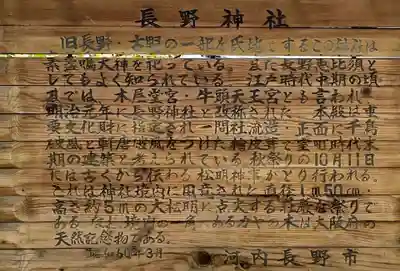 長野神社
旧長野・古野の一部を氏地とするこの神社は
素盞嗚大神を祀っている。宮は長野恵比須と
してもよく知られている。江戸時代中期の頃
までは、木屋堂宮・牛頭天王宮とも言われ
明治元年に長野神社と改称された。本殿は重
要文化財に指定され一間社流造・正面に千鳥
破風と軒唐破風をつけた檜皮葺で室町時代末
期の建築と考えられている。秋祭りの10月11日
には古くから伝わる松明神事がとり行われる。
これは神社境内に用意された直径1m50cm・
高さ約5mの大松明に点火する壮厳な祭りで
ある。又、境内の一角にあるかやの木は大阪府の
天然記念物である。
3月
河内長野市